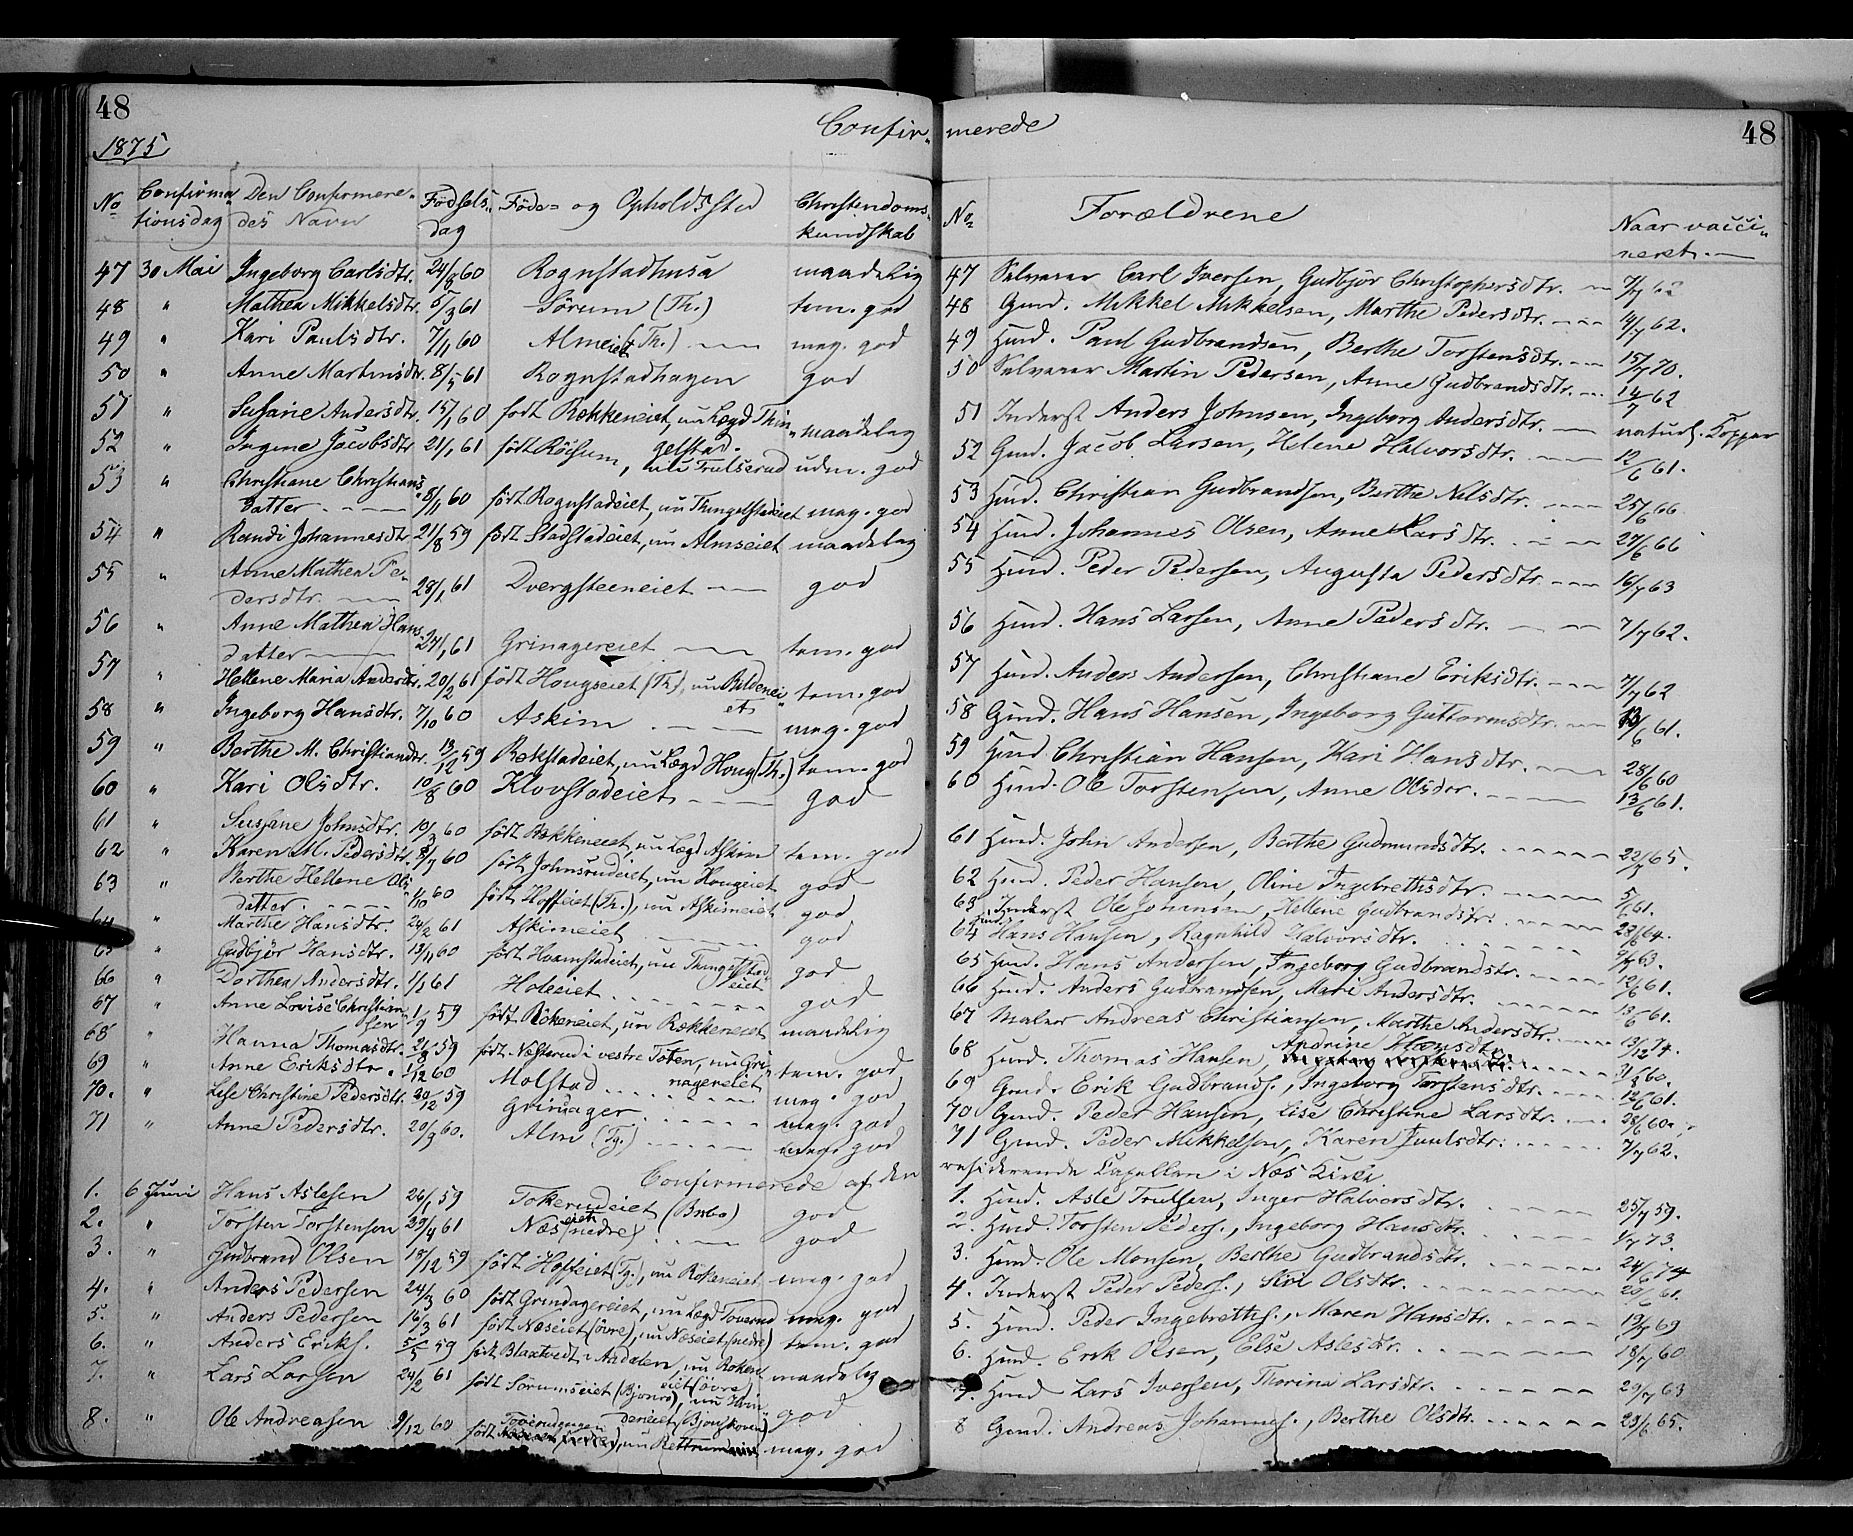 48
1875
Confir-
No Confirma- Den Confirmere- Fødsels- Føde- og Opholdssted Christendoms-
tionsdag des Navn dag kundskab
47 30 Mai Ingeborg Carlsdtr. 24/8 60 Rognstadhusa maadelig
48 " Mathea Mikkelsdtr. 5/3 61 Sørum (Th.) tem. god
49 " Kari Paulsdtr. 7/11 60 Almseiet (Th.) meg. god
50 " Anne Martinsdtr. 8/5 61 Rognstadhagen god
51 " Susane Andersdtr. 60 født Rækkeneiet, nu Lægd Thin- maadelig
52 " Ingine Jacobsdtr. 21/1 61 født Røisum, nu Trulserud udm. god
gelstad.
53 " Christiane Christians-
datter 8/11 60 født Rognstadeiet, nu Thingelstadeiet meg. god
54 " Randi Johannesdtr. 21/8 59 født Stadstadeiet, nu Almseiet maadelig
55 " Anne Mathea Pe-
dersdtr. 28/1 61 Dvergsteeneiet god
56 " Anne Mathea Hans-
datter 27/1 61 Grinagereiet tem. god
57 " Hellene Maria Andersdtr. 20/2 61 født Hougseiet (Th.), nu Bildenei- tem. god
et
58 " Ingeborg Hansdtr. 7/10 60 Askim meg. god
59 " Berthe M. Christiansdtr. 13/12 59 Rækstadeiet, nu Lægd Houg (Th.) tem. god
60 " Kari Olsdtr. 10/8 60 Klovstadeiet god
61 " Susane Johnsdtr. 19/3 60 født Rækkeneiet, nu Lægd Askim tem. god
62 " Karen M. Pedersdtr. 8/7 60 født Johnsrudeiet, nu Hougeiet god
63 " Berthe Hellene Ols-
datter 4/10 60 født Hoffeiet (Th.), nu Askimeiet god
64 " Marthe Hansdtr. 24/2 61 Askimeiet god
65 " Gudbjør Hansdtr. 13/11 60 født Hvamstadeiet, nu Thingelstad-
eiet god
66 " Dorthea Andersdtr. 1/1 61 Holeeiet god
67 " Anne Lovise Christian-
sen 1/9 59 født Røkeneiet, nu Rækkeneiet maadelig
68 " Hanna Thomasdtr. 21/8 59 født Næsterud i vestre Toten, nu Gri- tem. god
nagereiet
69 " Anne Eriksdtr. 1/12 60 Molstad meg. god
70. " Lise Christine Pedersdtr. 30/12 59 Grinager meg. god
71 " Anne Pedersdtr. 20/9 60. Alm (Tg.) meg. god
Confirmerede af den
1. 6 Juni Hans Aslesen 26/1 59 Tokerudeiet (Bnbo) god
2. " Torsten Torstensen 29/4 61 Næseiet (nedre) god
3. " Gudbrand Olsen 18/12 59 født Hoffeiet (Tg.), nu Rokeneiet meg. god
4. " Anders Pedersen 24/3 60 født Grindagereiet, nu Lægd Toverud meg. god
5. " Anders Pedersen 16/3 61 født Næseiet (øvre), nu Næseiet (nedre) tem. god
6. " Anders Eriks. 5/5 59 født Blaatvedt i Aadalen, nu Roken- maadelig
eiet (øvre)
7. " Lars Larsen 24/2 61 født Sørumseiet (Bjoneo), nu
dereiet (Bjonskoven) god
8. " Ole Andreasen 9/12 60 født (nedre), nu meg. god
48
merede
No Forældrene Naar vacci-
neret
47 Selveier Carl Iversen, Gudbjør Christophersdtr. 7/7 62
48 Gmd. Mikkel Mikkelsen, Marthe Pedersdtr. 14/7 62.
49 Husm. Paul Gudbrandsen, Berthe Torstensdtr. 15/7 70.
50 Selveier Martin Pedersen, Anne Gudbrandsdtr. 14/7 62
51 Inderst Anders Johnsen, Ingeborg Andersdtr. naturl. Kopper
52 Gmd. Jacob Larsen, Helene Halvorsdtr. 12/6 61.
53 Husm. Christian Gudbrandsen, Berthe Nilsdtr. 25/6 66.
54 Husm. Johannes Olsen, Anne Larsdtr. 27/6 66
55 Husm. Peder Pedersen, Augusta Pedersdtr. 16/7 63
56 Husm. Hans Larsen, Anne Pedersdtr. 7/7 62.
57 Husm. Anders Andersen, Christiane Eriksdtr. 7/7 62
58 Gmd. Hans Hansen, Ingeborg Guttormsdtr. 13/6 61.
59 Husm. Christian Hansen, Kari Hansdtr. 28/6 60
60 Husm. Ole Torstensen, Anne Olsdtr. 13/6 61.
61 Husm. John Andersen, Berthe Gudmundsdtr. 22/7 65.
62 Husm. Peder Hansen, Oline Ingebrethsdtr. 5/6 61.
63 Inderst Ole Johansen, Hellene Gudbrandsdtr. 23/6 64.
64 Hans Hansen, Ragnhild Halvorsdtr.
65 Husm. Hans Andersen, Ingeborg Gudbrandsdtr. 9/7 63.
66 Husm. Anders Gudbrandsen, Mari Andersdtr. 12/6 61.
67 Maler Andreas Christiansen, Marthe Andersdtr. 13/6 61.
68 Husm. Thomas Hansen, Andrine Hansdtr. 13/12 74.
69 Gmd. Erik Gudbrands., Ingeborg Torstensdtr. 60.
70 Gmd. Peder Hansen, Lise Christine Larsdtr. 12/6 61.
71 Gmd. Peder Mikkelsen, Karen Juulsdtr. 28/6 60.
7/7 62.
residerende Capellan i Næs Kirke.
1. Husm. Asle Trulsen, Inger Halvorsdtr. 25/7 59.
2. Husm. Torsten Peders., Ingeborg Hansdtr. 4/7 73.
3. Husm. Ole Monsen, Berthe Gudbrandsdtr. 24/6 74
4. Inderst Peder Peders., Siri Olsdtr. 20/6 61.
5. Husm. Peder Ingebreths., Maren Hansdtr. 69
6. Husm. Erik Olsen, Else Aslesdtr. 18/7 60
7. Husm. Lars Iversen, Thorine Larsdtr. 29/7 63
8 Gmd. Andreas Johannes., Berthe Olsdtr. 29/6 65.